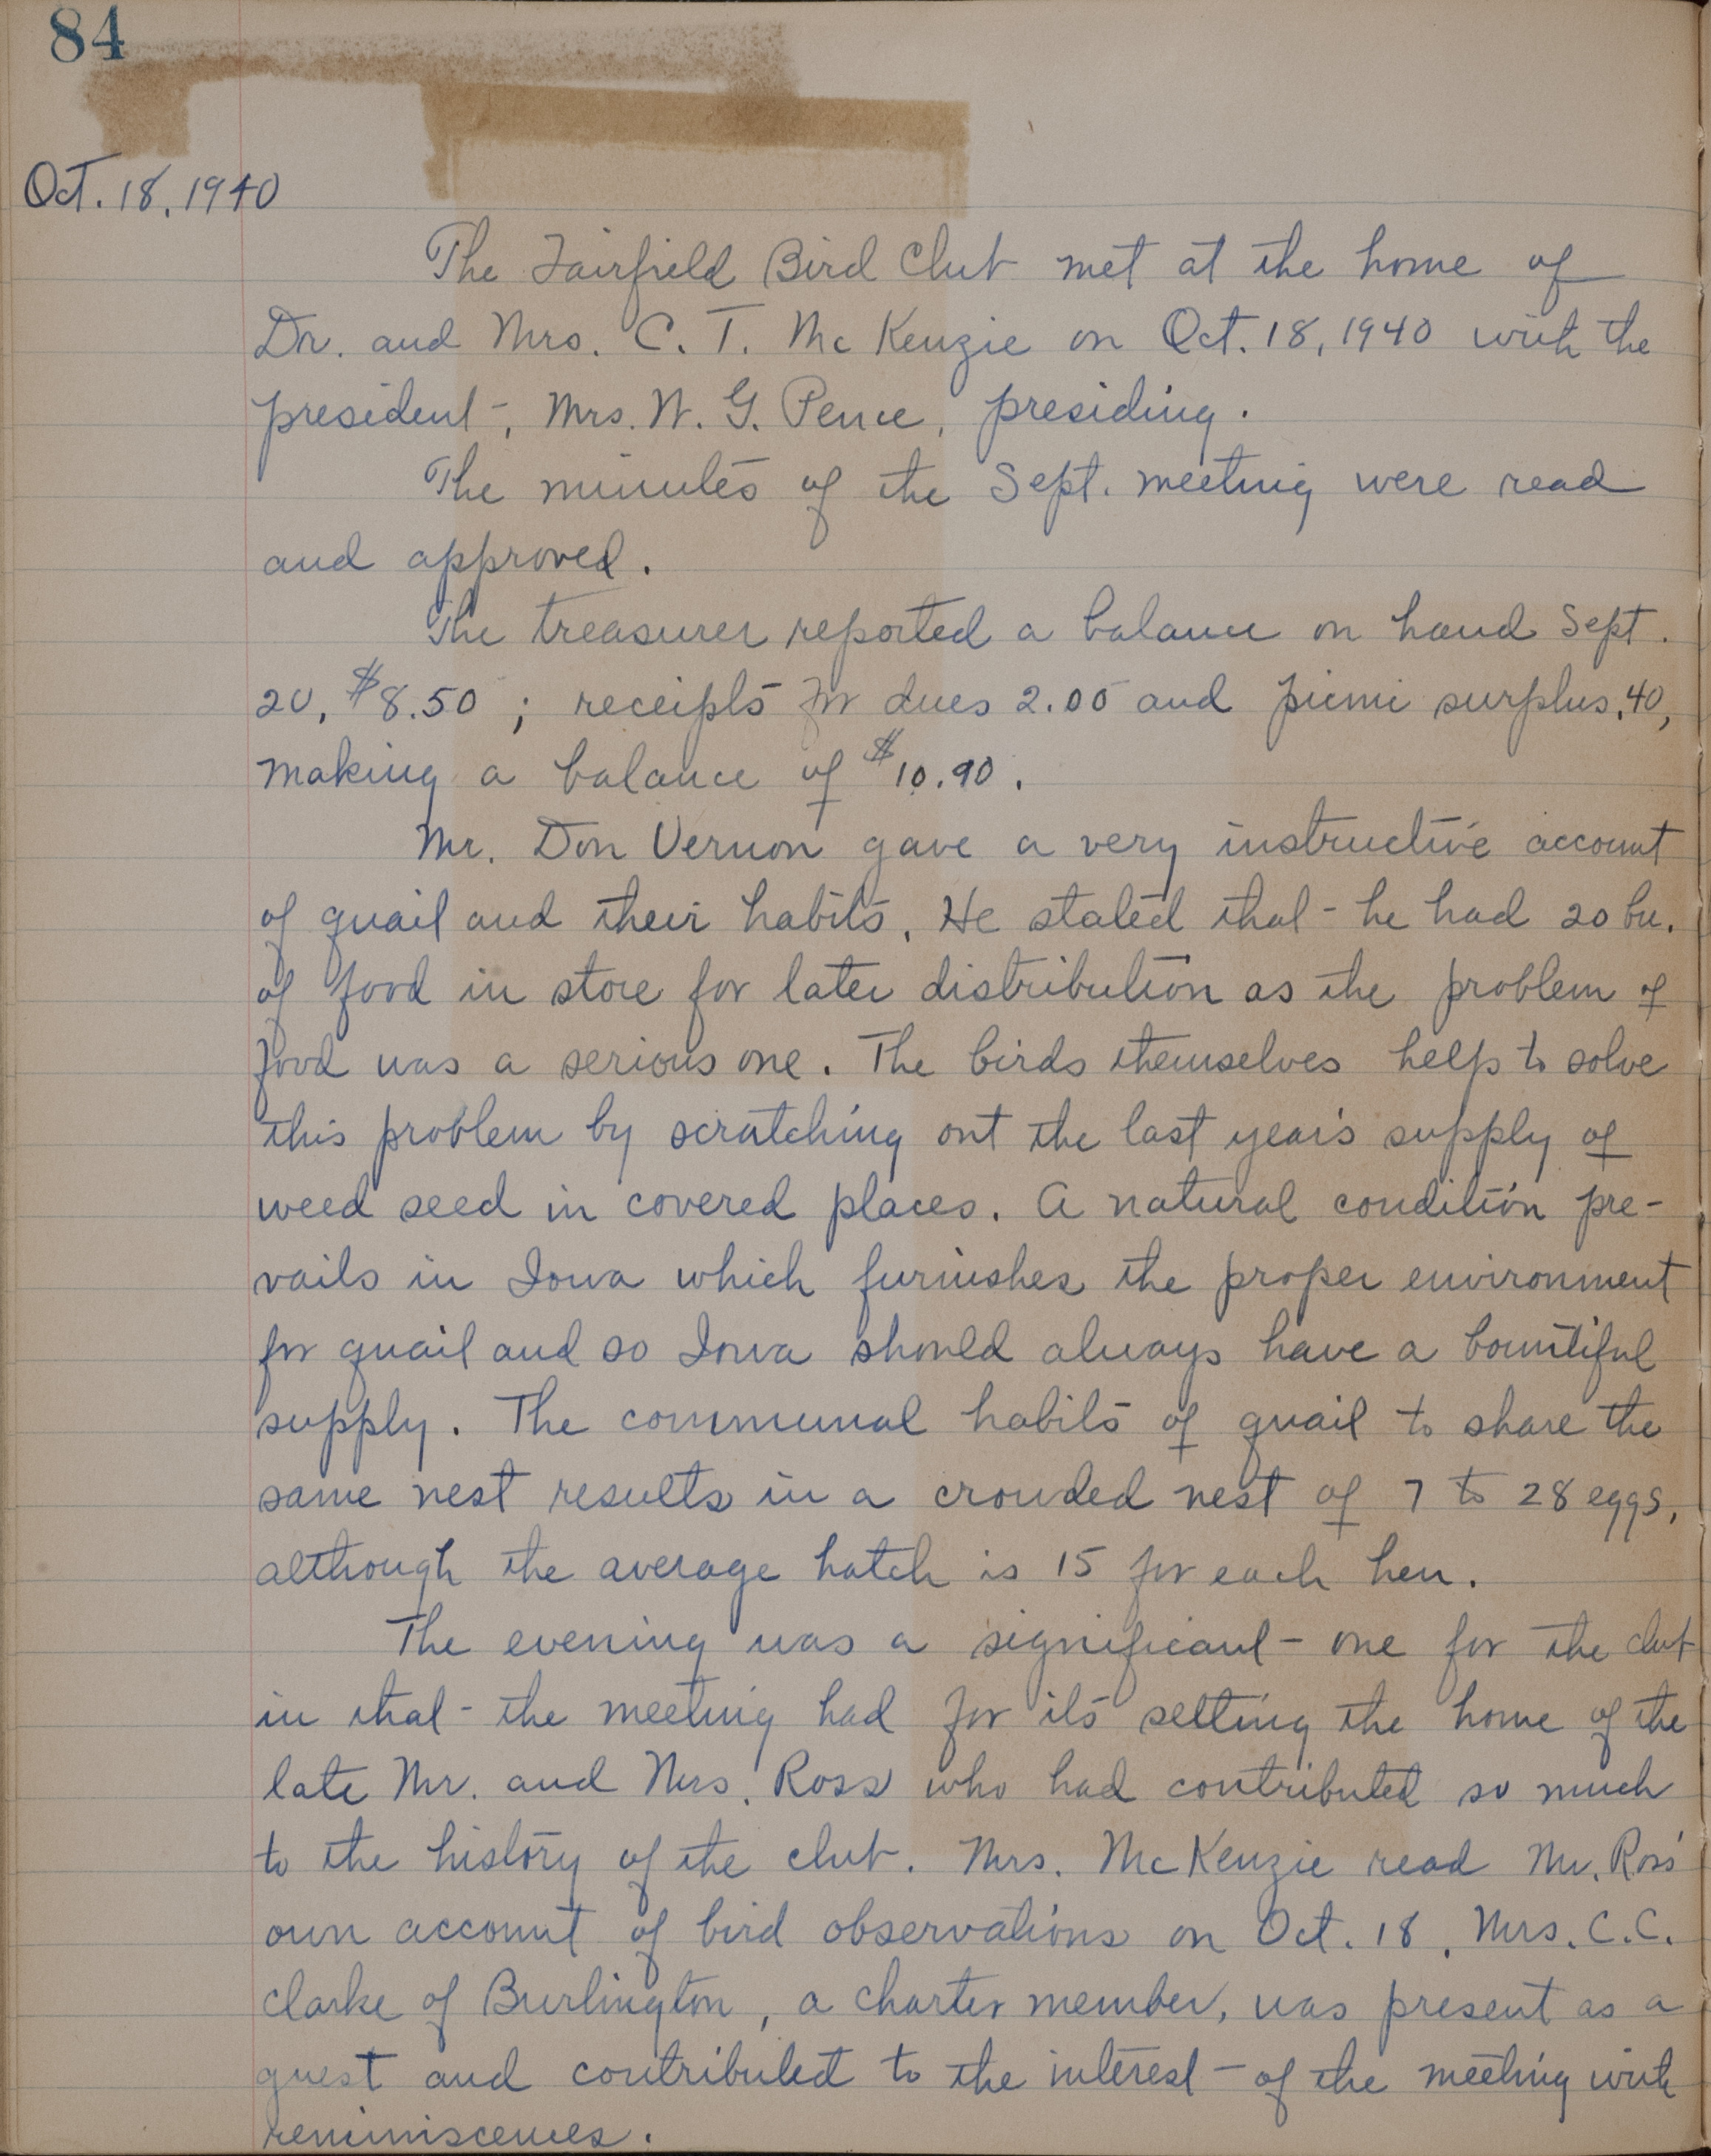 84
Oct. 18, 1940
The Fairfield Bird Club met at the home of
Dr. and Mrs. C. T. McKenzie on Oct. 18, 1940 with the
president, Mrs. W. G. Pence, presiding.
The minutes of the Sept. meeting were read
and approved.
The treasurer reported a balance on hand Sept.
20, $8.50 ; receipts for dues 2.00 and picnic surplus .40,
making a balance of $10.90.
Mr. Don Vernon gave a very instructive account
of quail and their habits. He stated that he had 20 bu.
of food in store for later distribution as the problem of
food was a serious one. The birds themselves help to solve
this problem by scratching out the last year's supply of
weed seed in covered places. A natural condition pre-
vails in Iowa which furnishes the proper environment
for quail and so Iowa should always have a bountiful
supply. The communal habits of quail to share the
same nest results in a crowded nest of 7 to 28 eggs,
although the average hatch is 15 for each hen.
The evening was a significant one for the club
in that the meeting had for its setting the home of the
late Mr. and Mrs. Ross who had contributed so much
to the history of the club. Mrs. McKenzie read Mr. Ross'
own account of bird observations on Oct. 18. Mrs. C. C.
Clarke of Burlington, a charter member, was present as a
guest and contributed to the interest of the meeting with
reminiscences.